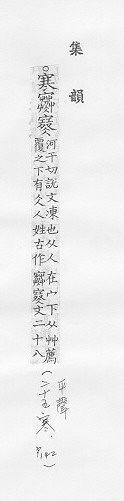 集韻
。寒𡫾𡫼河干切說文凍也从人在宀下从茻薦
覆之下有仌人姓古作𡫾𡫼文二十八
（平聲
二十五寒．
P142）